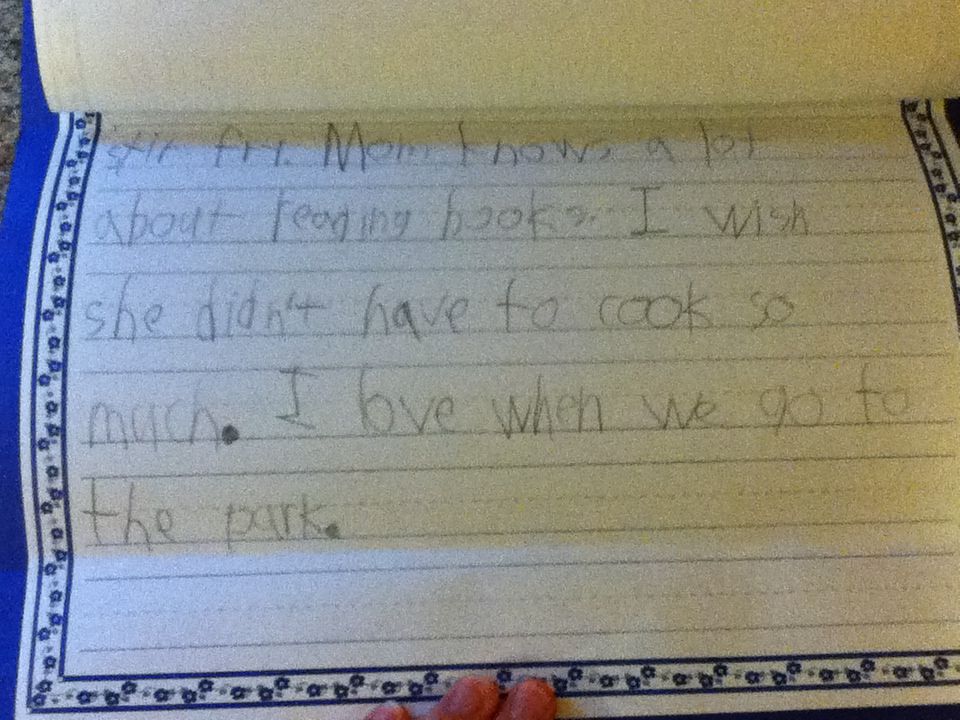 stir fry. Mom knows a lot
about reading books. I wish
she didn't have to cook so
much. I love when we go to
the park.